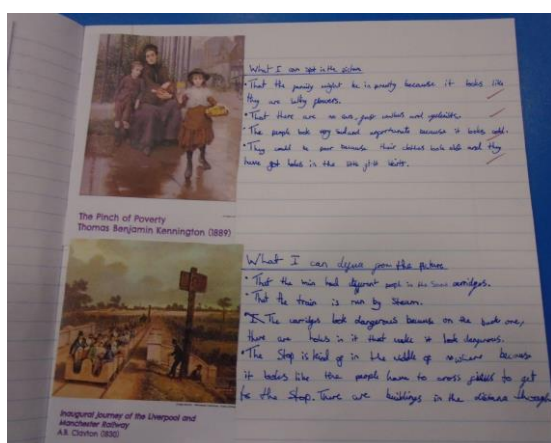 What I can spot in the picture
• That the family might be in poverty because it looks like
they are selling flowers.
• That there are no cars, just and
• The people look very and unfortunate because it looks cold.
• They could be poor because their clothes look old and they
have got holes in the little girls skirt.
The Pinch of Poverty
Thomas Benjamin Kennington (1889)
What I can from the picture
• That the train had different people in the same carridges.
• That the train is run by steam.
• The carridges look dangerous because on the back one,
there are holes in it that make it look dangerous.
• The Stop is kind of in the middle of nowhere because
it looks like the people have to cross fields to get
to the Stop. There are buildings in the distance through
Inaugural Journey of the Liverpool and
Manchester Railway
A.B. Clayton (1830)